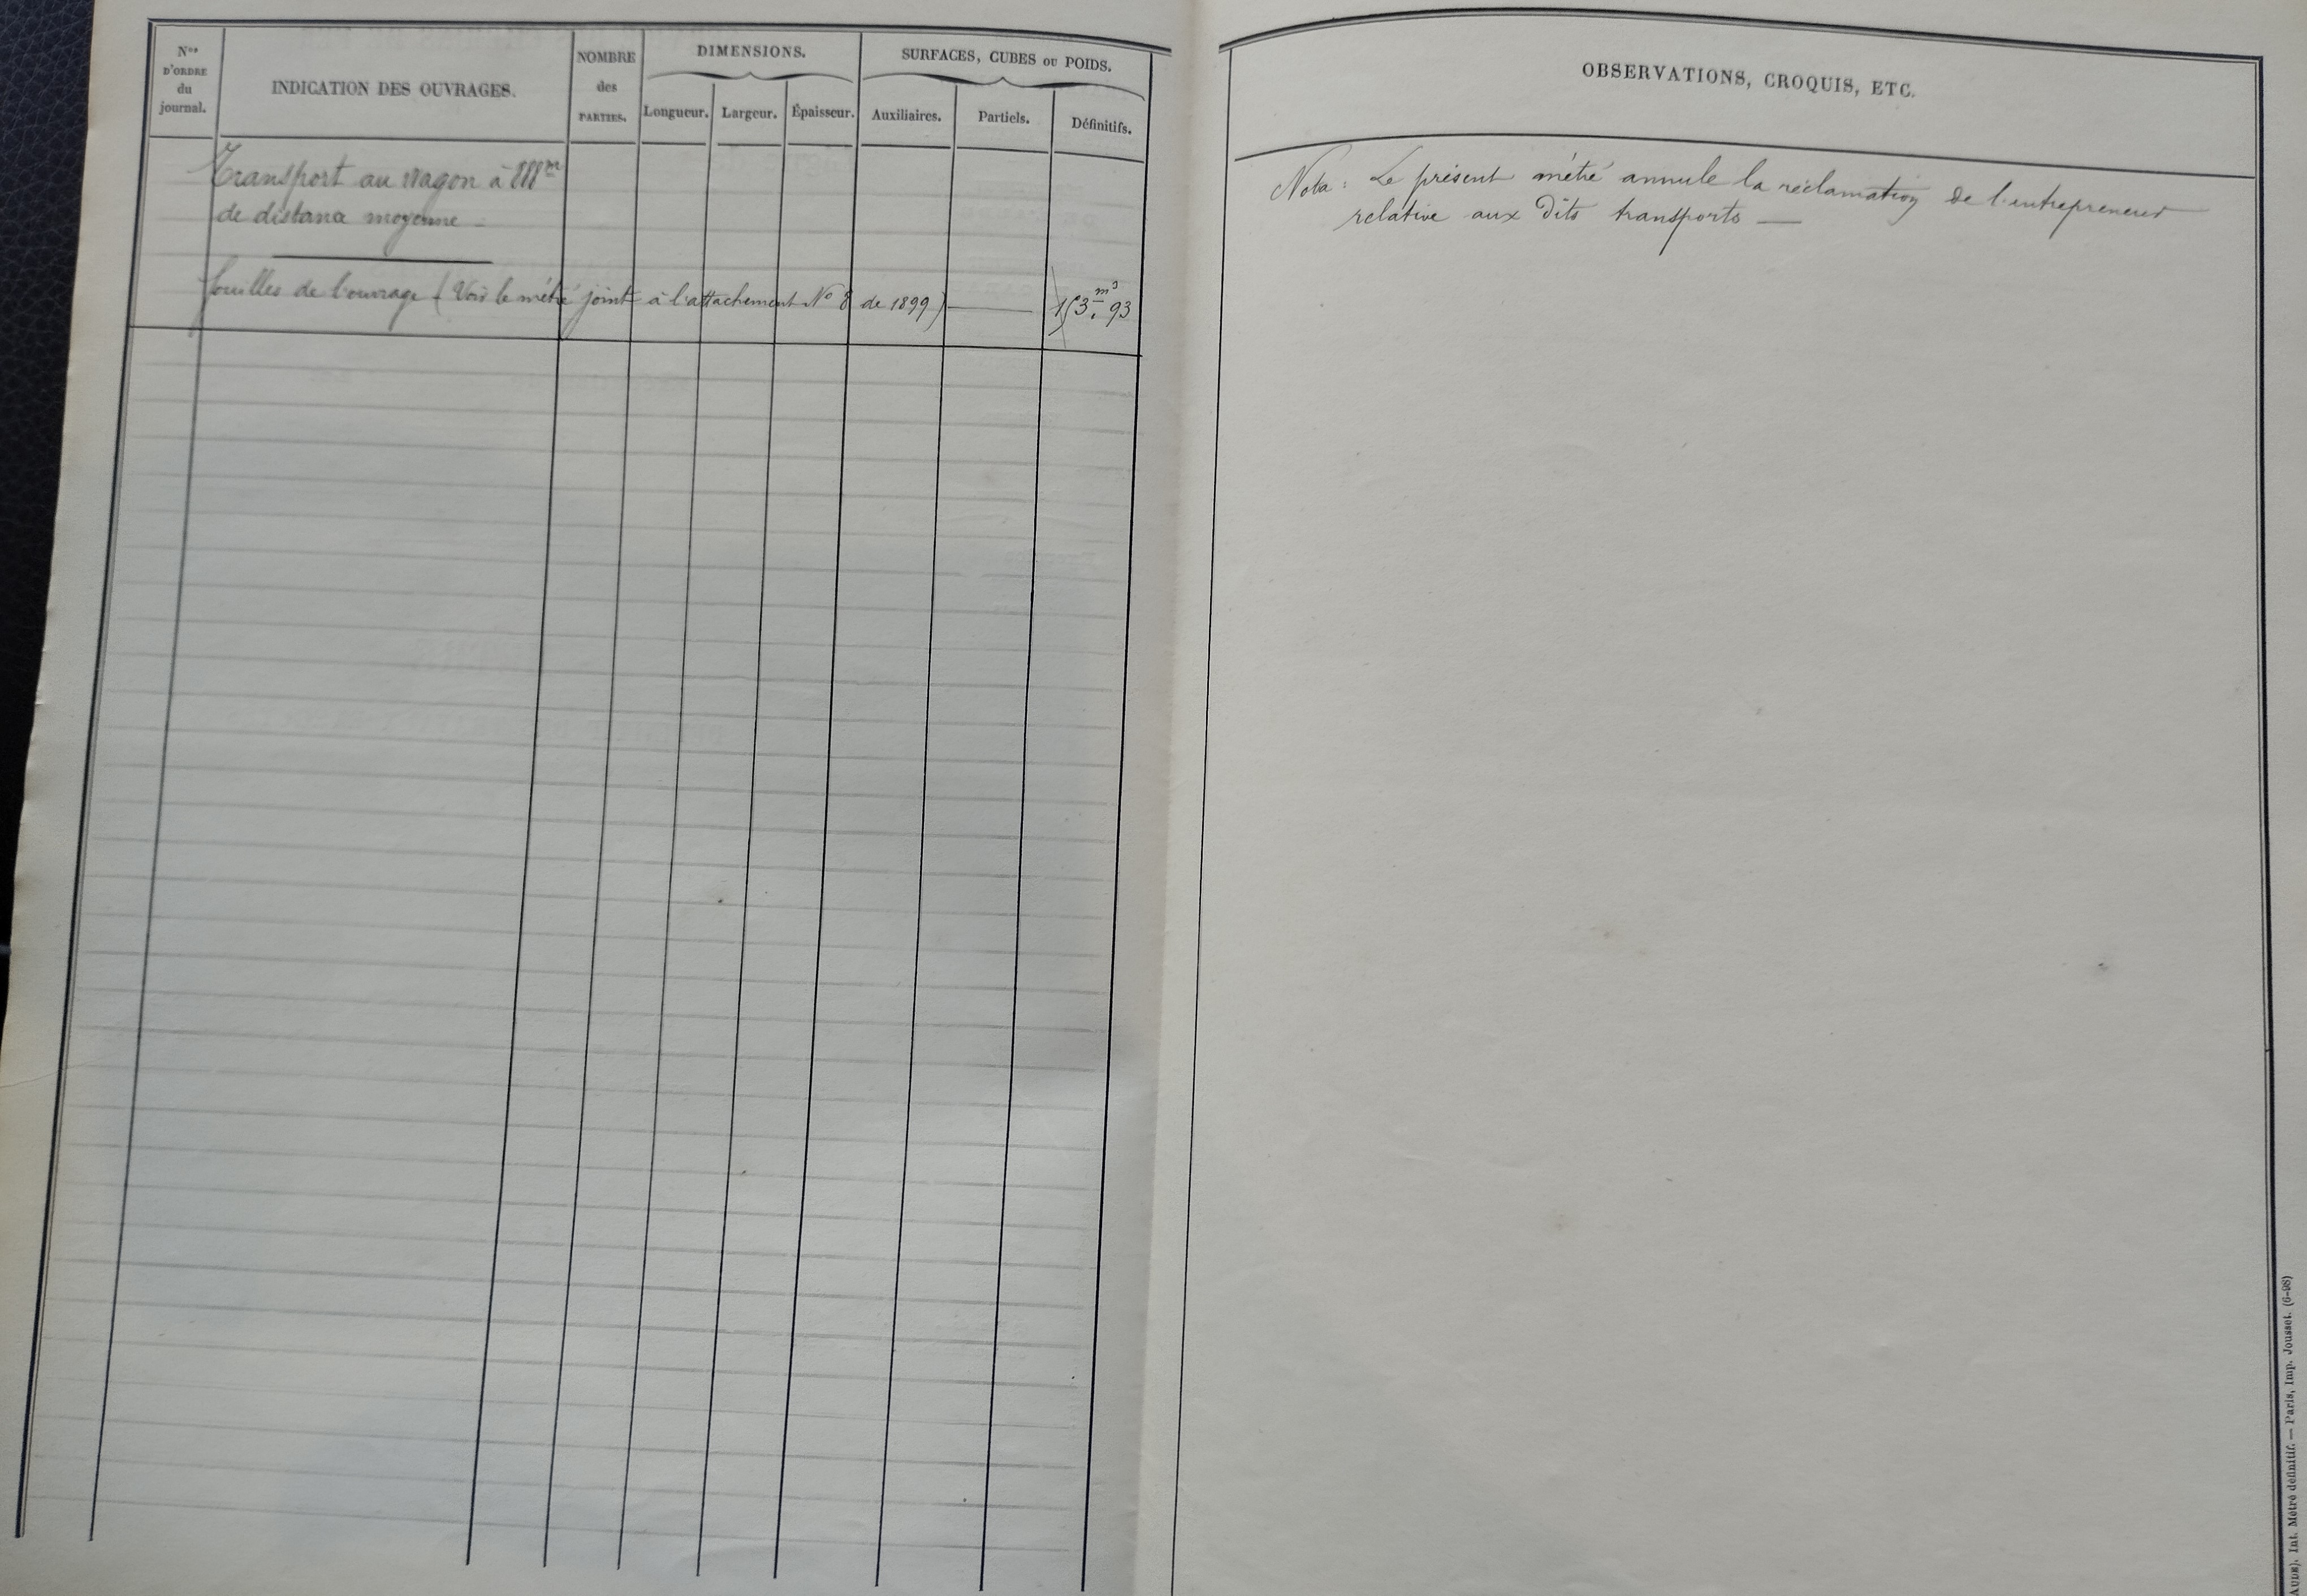 Nos
D'ORDRE
du
journal.
INDICATION DES OUVRAGES.
NOMBRE
des
PARTIES.
DIMENSIONS.
Longueur. Largeur. Épaisseur.
SURFACES, CUBES OU POIDS.
Auxiliaires. Partiels. Définitifs.
Transport au wagon à 888m
de distance moyenne
fouilles de l'ouvrage (Voir le métré joint à l'attachement No 8 de 1899) 153m3.93
OBSERVATIONS, CROQUIS, ETC.
Nota : Le présent métré annule la réclamation de l'entrepreneur
relative aux dits transports —
Int. Métré définitif. — Paris, Imp. Jousset. (6-98)